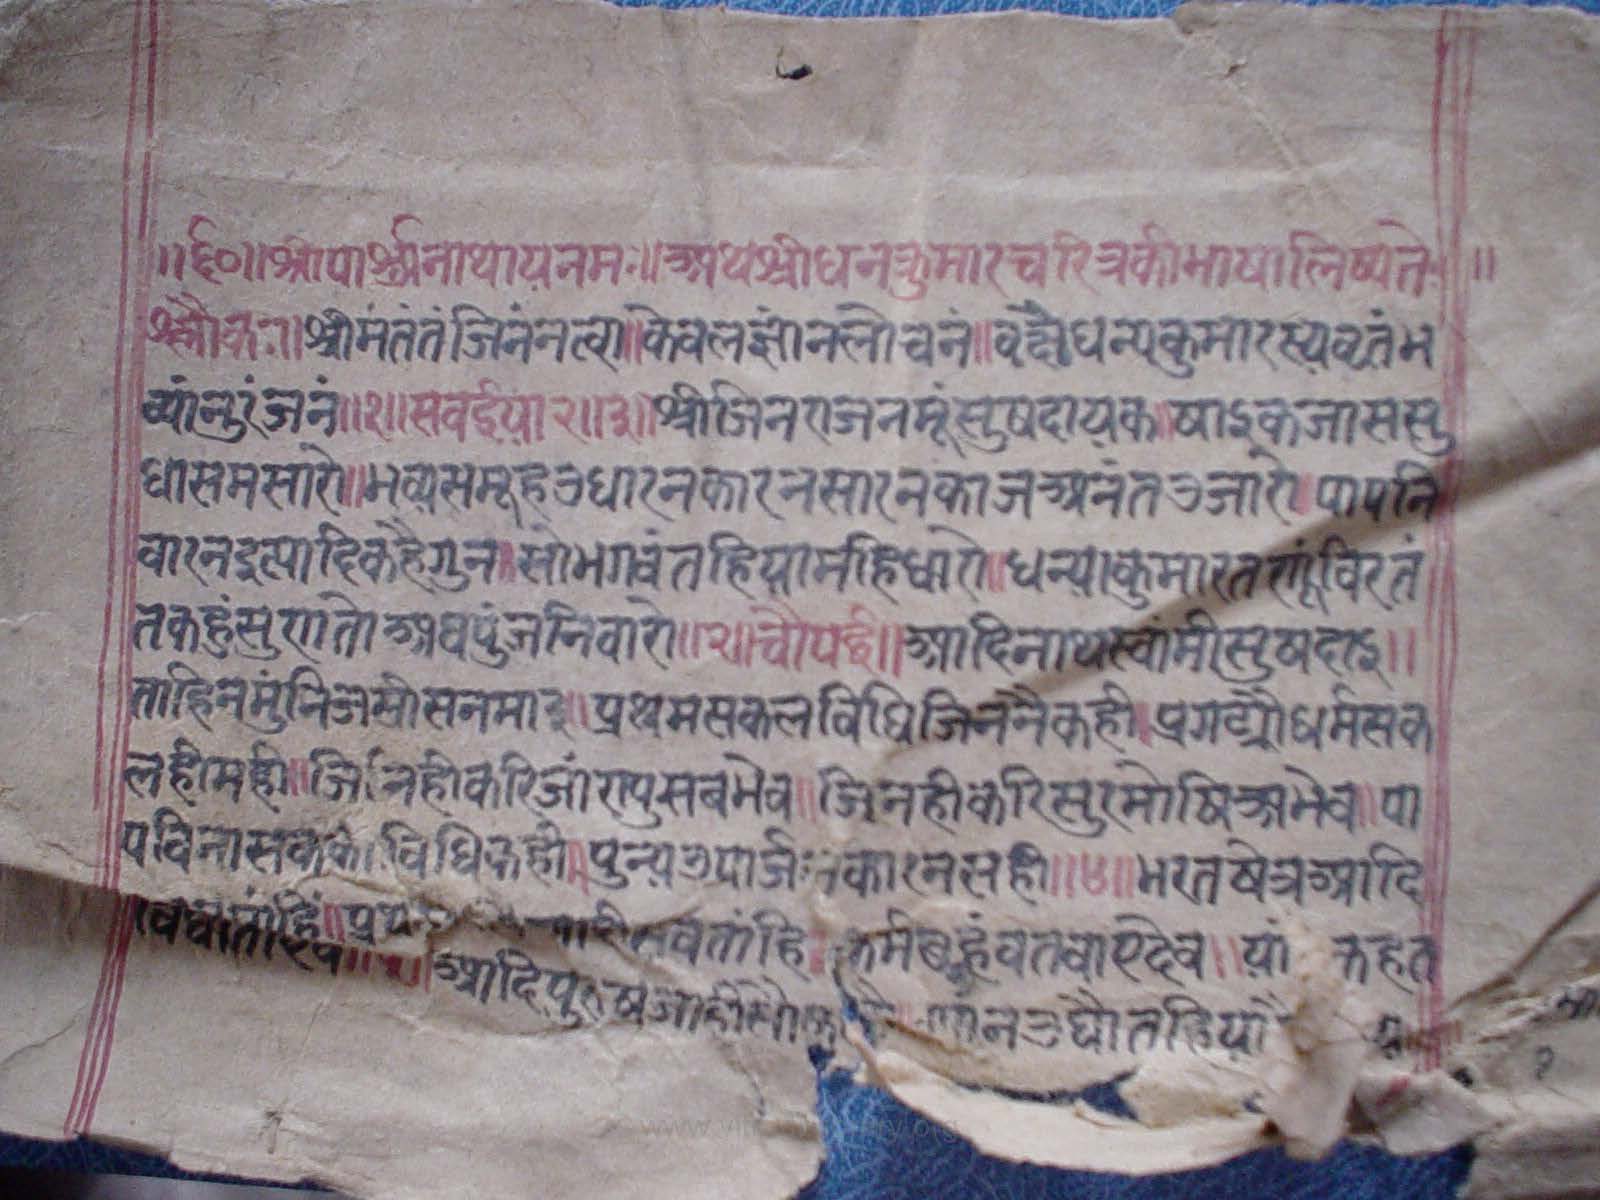 ॥६०॥श्रीपार्श्वनाथायनमः॥अथश्रीधनकुमारचरित्रकीभाषालिष्यते॥
श्लोकः॥श्रीमंतंतंजिनंनत्वा॥केवलज्ञांनलोचनं॥वक्ष्यैधन्यकुमारस्यवृतंभ
व्यांनुरंजनं॥१॥सवईया२॥३॥श्रीजिनराजनमूंसुषदायक॥षाइकजाससु
धासमसारो॥भव्यसमूहउधारनकारनसारनकाजअनंतउजारो॥पापनि
वारनइत्यादिकहैगुन॥सोभगवंतहियामहिधारो॥धन्याकुमारतणूंविरतं
तकहुंसुणातोअघपुंजनिवारो॥२॥चौपई॥आदिनाथस्वांमीसुषदाइ॥
ताहिनमुंनिजसीसनमाइ॥प्रथमसकलविधिजिननैकही॥प्रगट्यौधर्मसक
लहीमही॥जिनिहीकरिजांणपुसबभेव॥जिनहीकरिसुरमोषिअभेव॥पा
पविनासककीविधिकही॥पुन्यउपार्जनकारनसही॥४॥भरतषेत्रआदि
हिं॥ सबतांहि॥ देव॥यां कहत
आदिपुरुष हिया